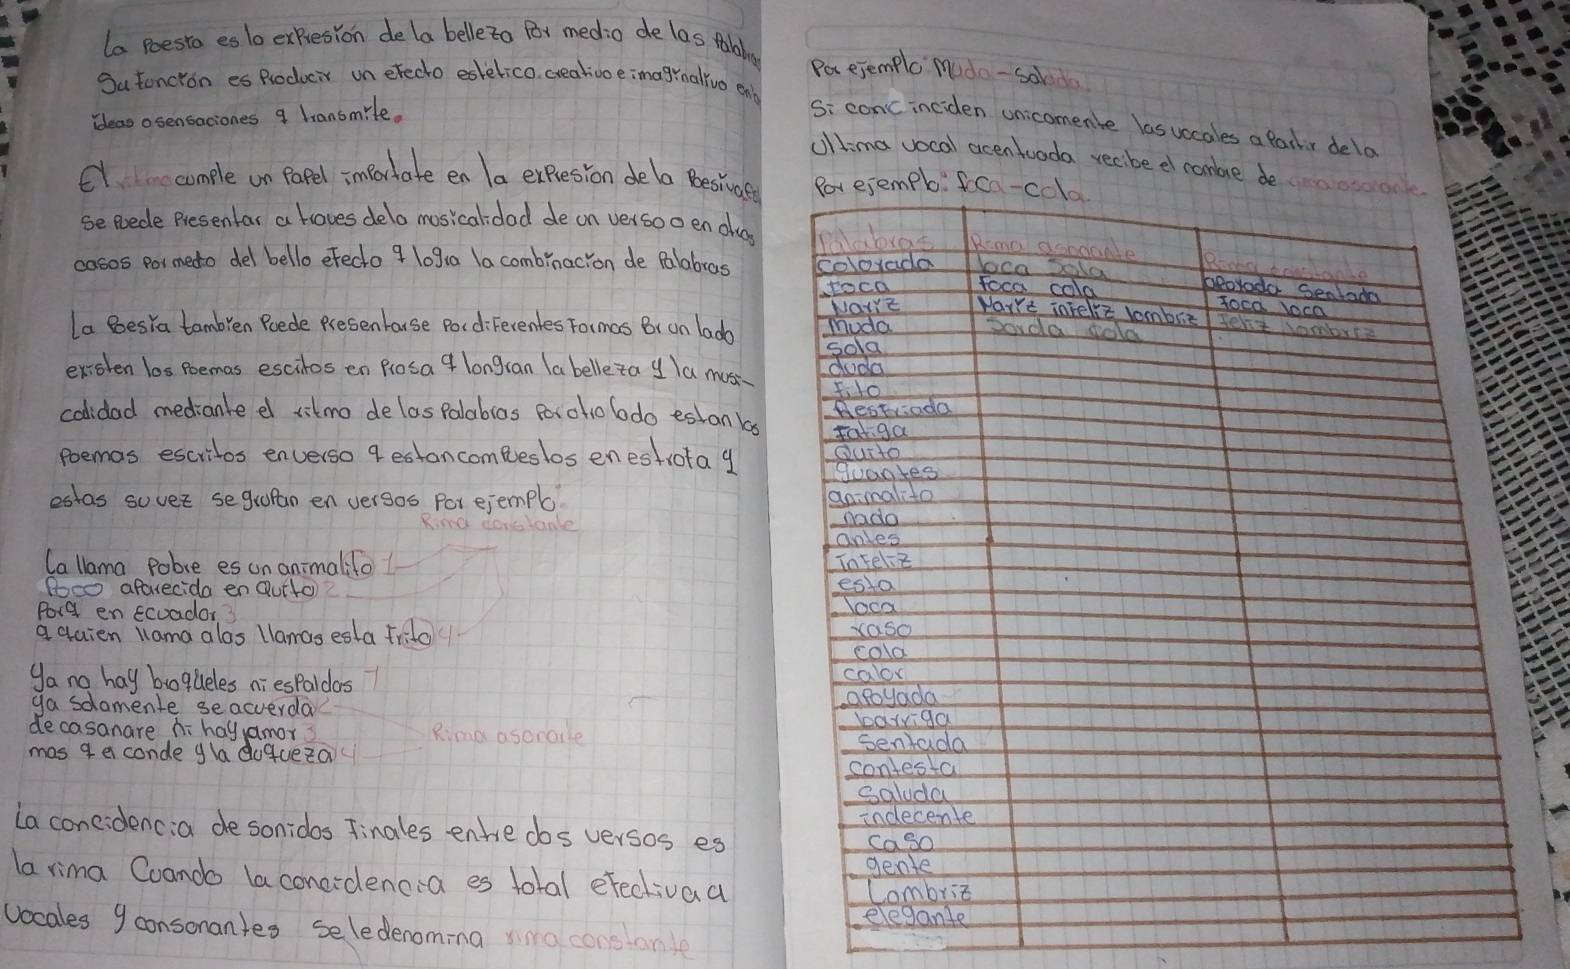 La Poesia es la expresión de la belleza Por medio de las Palabras
Su función es Producir un efecto estetico. creativo e imaginativo en la
ideas o sensaciones q transmite.
El ritmo cumple un Papel importate en la expresión de la Poesiva
se Puede Presentar a traves dela musicalidad de un verso o en otros
casos Por medio del bello efecto q logra la combinacion de Palabras
La Poesia tambien Puede Presentarse Por diferentes Formas Por un lado
existen los Poemas escitos en Prosa q longran la belleza y la musi-
calidad mediante el ritmo de las Palabras Por otro lado estan los
Poemas escritos en verso q estan compuestos en estrofa y
estas su vez se grupan en versos Por ejemplo:
Rima constante
La llama Pobre es un animalito 1
Poco aparecida en Quito 2
Porq en Ecuador 3
a quien llama a las llamas esta Frito 4
ya no hay broqueles ni espaldas 1
ya solamente se acuerda 2
de casanare ni hay amor 3
mas q el conde y la duqueza 4
Rima asonante
La concidencia de sonidos Finales entre dos versos es
la rima Cuando la concidencia es total efectiva a
vocales y consonantes se le denomina rima constante
Por ejemplo: Muda - Saluda
Si concinciden unicamente las vocales a Partir de la
Ultima vocal acentuada recibe el nombre de rima asonante.
Por ejemplo: foca - cola
Palabras Rima asonante Rima constante
colorada loca Sola apoyada Sentada
foca Foca cola foca loca
Nariz Nariz infeliz lombriz feliz lombriz
muda sorda sola
sola
duda
fito
Resfriada
fatiga
Quito
guantes
animalito
nada
antes
infeliz
esta
loca
raso
cola
calor
apoyada
barriga
sentada
contesta
saluda
indecente
caso
gente
Lombriz
elegante